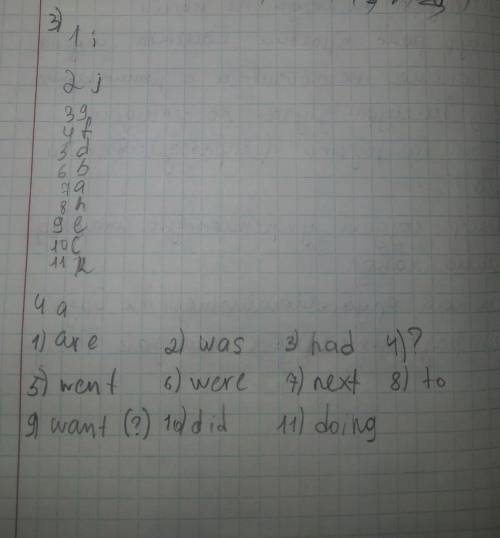 3)
1 i
2 j
3 g
4 f
5 d
6 b
7 a
8 h
9 e
10 c
11 k
4 a
1) are 2) was 3) had 4) ?
5) went 6) were 7) next 8) to
9) want (?) 10) did 11) doing